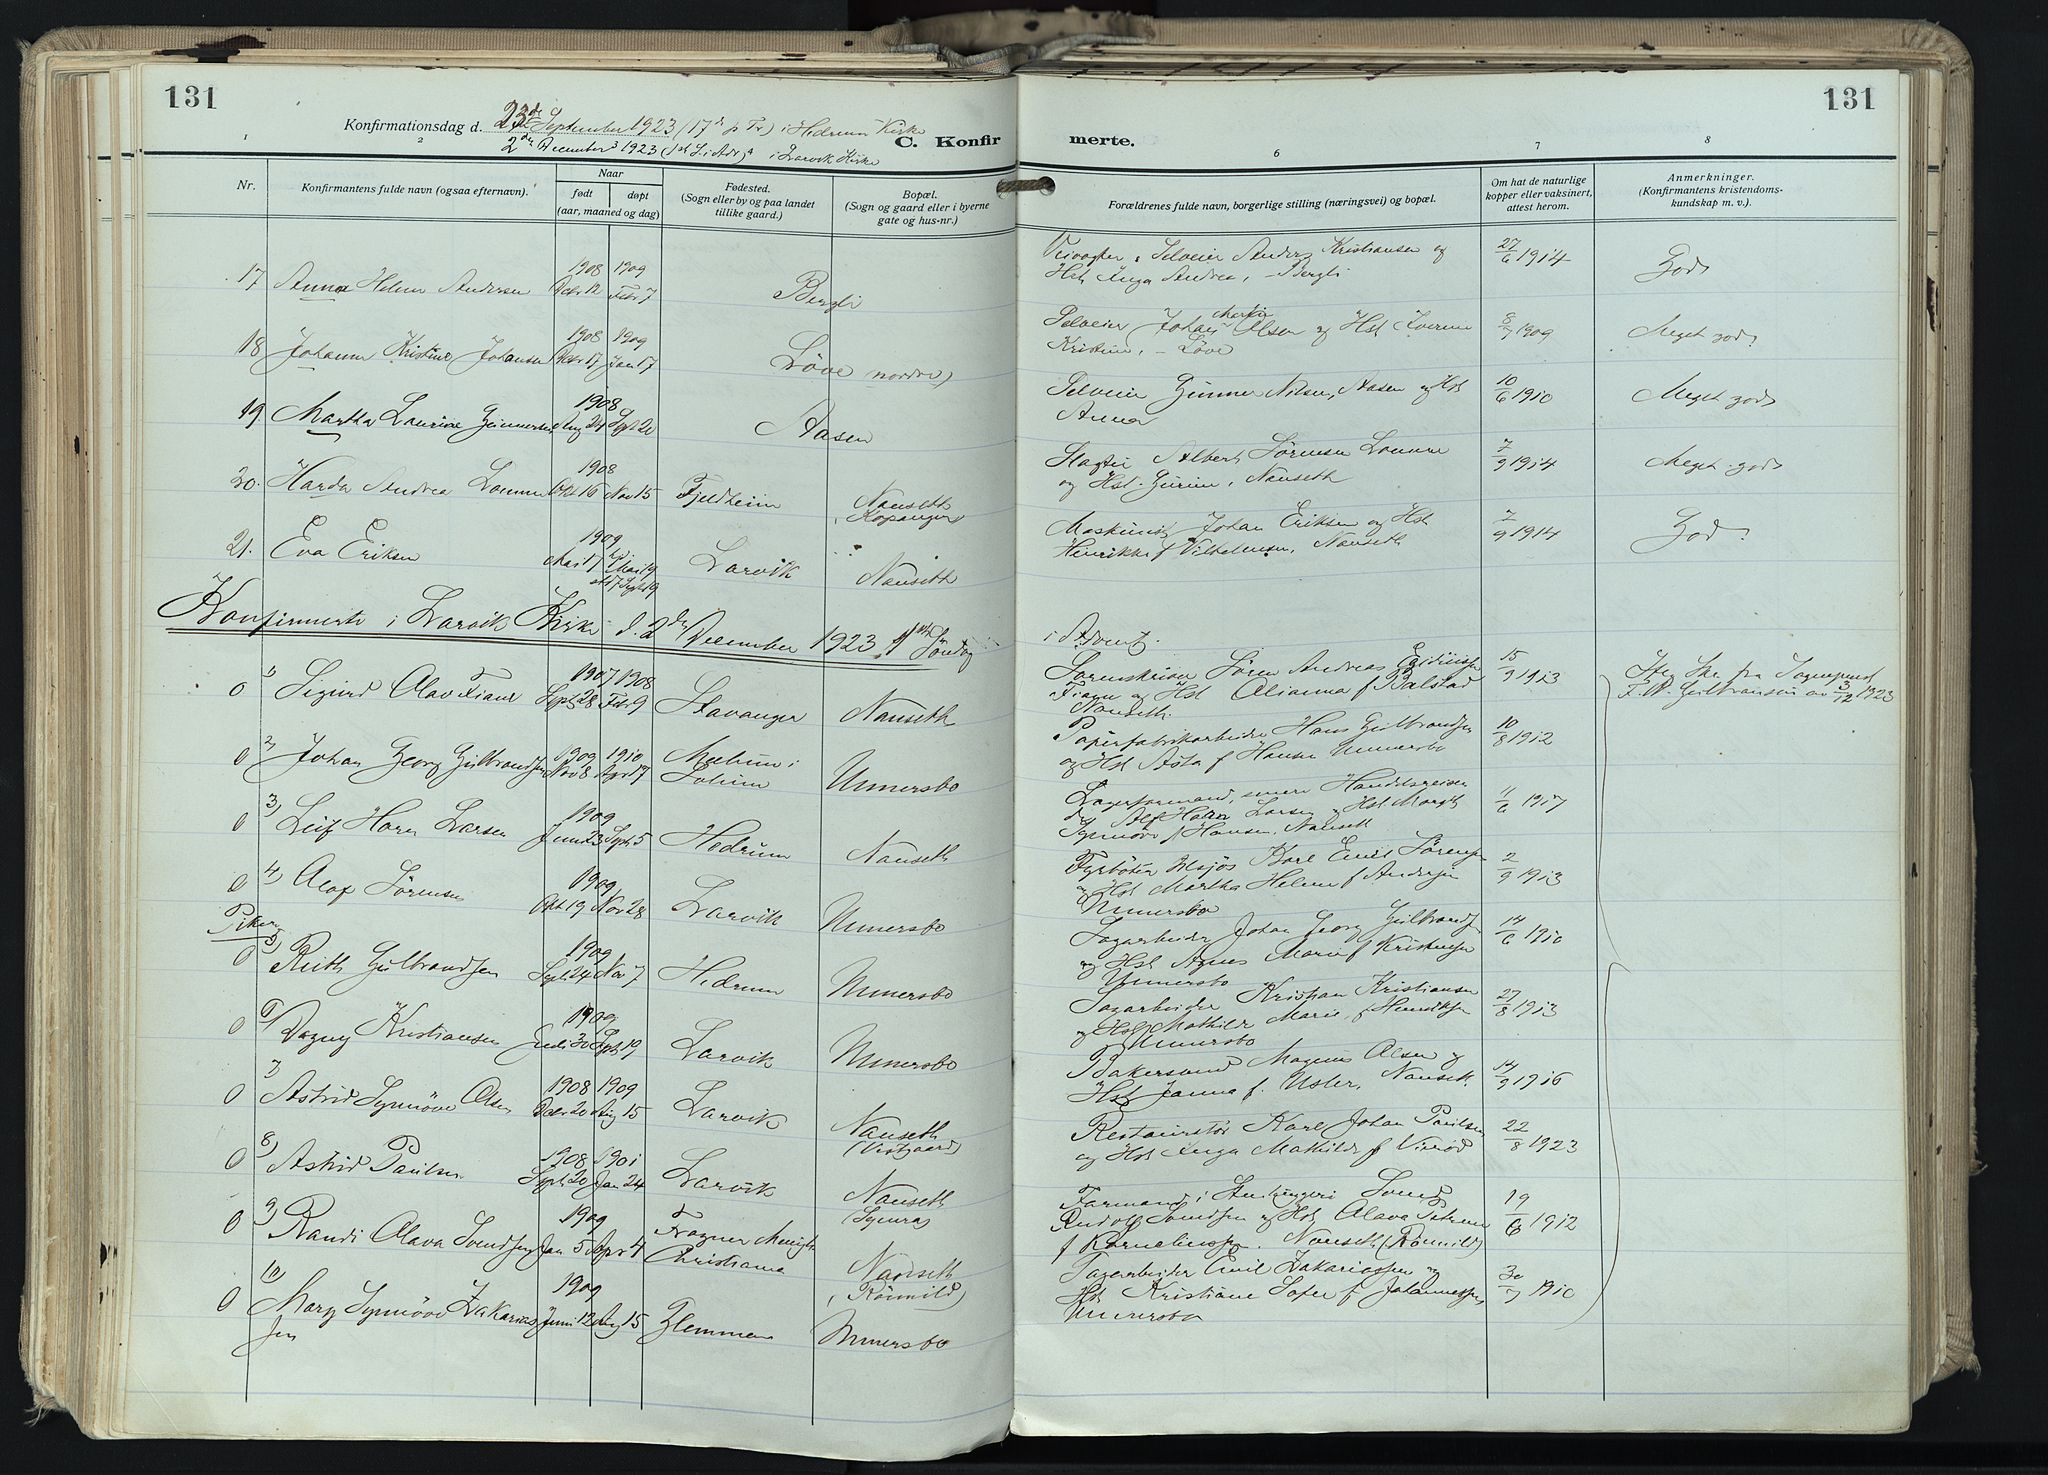 131
131
Konfirmationsdag d. 23de September 1923 (17de p Tr) i Hedrum Kirke
2den December 1923 (1st S. i Adv) i Larvik Kirke
C. Konfirmerte.
1 2 6 7 8
Nr.
Konfirmantens fulde navn (ogsaa efternavn).
Naar
født
døpt
(aar, maaned og dag)
Fødested.
(Sogn eller by og paa landet
tillike gaard.)
Bopæl.
(Sogn og gaard eller i byerne
gate og hus-nr.)
Forældrenes fulde navn, borgerlige stilling (næringsvei) og bopæl.
Om hat de naturlige
kopper eller vaksinert,
attest herom.
Anmerkninger.
(Konfirmantens kristendoms-
kundskap m. v.).
1908 1909
17 Anna Helene Andersen Febr 7 Bergli
Selveier Anders Kristiansen og
Hst Inga Andrea, Bergli
27/6 1914 God
1908 1909
18 Johanne Kristine Johansen Dcbr 17 Jan 17 Løve nordre
Selveier Johan Martin Olsen og Hst
Kristine, Løve
8/7 1909 Meget god
1908
19 Martha Laurine Gunnersen Aug 24 Sept 20 Aasen
Selveier Gunner Nilsen, Aasen og Hst
Anna
10/6 1910 Meget god
1908
20. Andrea Okt 16 Nov 15 Fjeldheim Nanseth
(Kopangen)
Albert Sørensen
og Hst. , Nanseth
7/9 1914 Meget god
1909
21. Eva Eriksen Mai 17 Larvik Nanseth
Maskinist Johan Eriksen og Hst
Henrikke f Vilhelmsen, Nanseth
7/9 1914 God.
Konfirmerte i Larvik Kirke d. 2den December 1923, 1ste Søndag
i Advent.
1907 1908
0 1) Sigurd Olav Fjane Sept 28 Febr 9 Stavanger Nanseth
Sørenskriver Søren Andreas
og Hst Alianna f Balstad
Nanseth.
15/9 1913
Iflg. Skr fra Sogneprest
F. W. Gulbransen av 3/12 1923
1909 1910
0 2) Johan Georg Gulbrandsen Nov 8 Apr 17 Unnersbo
Papirfabrikarbeider Hans Gulbrandsen
og Hst Asta f Hansen Unnersbo
10/8 1912
1909
0 3) Leif Horn Larsen Juni 23 Sept 5 Hedrum Nanseth
Lagerformand, senere Handelsreisende
Alf Larsen og Hst Margit
Synnøve f Hansen, Nanseth
11/6 1917
1909
0 4) Olaf Sørensen Okt 19 Nov 28 Larvik Unnersbo
Fyrbøter tilsjøs Karl Emil Sørensen
og Hst Martha Helene f Andersen
Unnersbo
2/9 1913
Piker
1909
0 5) Ruth Gulbrandsen Sept 24 Nov 7 Hedrum Unnersbo
Sagarbeider Johan Georg Gulbrandsen
og Hst Agnes Marie f Kristensen
Unnersbo
14/6 1910
1909
0 6) Dagny Kristiansen Juli 30 Sept 19 Larvik Unnersbo
Sagarbeider Kristian Kristiansen
og Hst Mathilde Marie f Henriksen
Unnersbo
27/8 1913
1908 1909
0 7) Astrid Synnøve Olsen Dcbr 20 Aug 15 Larvik Nanseth
(Vestgaard)
Bakersvend Magnus Olsen og
Hst Janna f. Usler, Nanseth
14/9 1916
1908 1901
0 8) Astrid Paulsen Sept 20 Jan 24 Larvik Nanseth
(Synra)
Restauratør Karl Johan Paulsen
og Hst Inga Mathilde f Virød
22/8 1923
1909
0 9) Randi Olava Svendsen Jan 5 Apr 4 Fragner Menigh
Christiania
Nanseth
(Rømild)
Formand i Stenhuggeri
Rudolf Svendsen og Hst Olava Petrine
f Korneliussen. Nanseth (Rømild)
19/6 1912
1909
0 10) Mary Synnøve Zakarias Juni 12 Aug 15 Glemmen Unnersbo
sen
Sagarbeider Emil Zakariassen og
Hst Kristiane Sofie f Johannessen
Unnersbo
30/7 1910